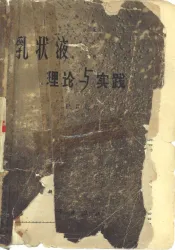 乳状液、
理论与实践